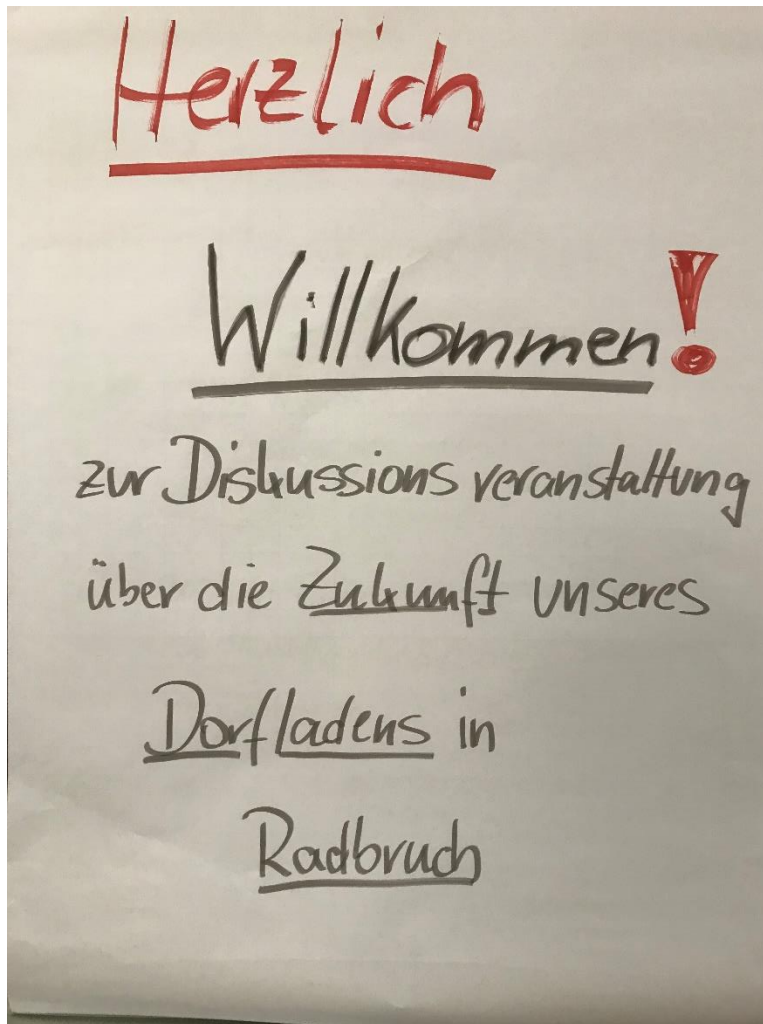 Herzlich
Willkommen!
zur Diskussionsveranstaltung
über die Zukunft unseres
Dorfladens in
Radbruch